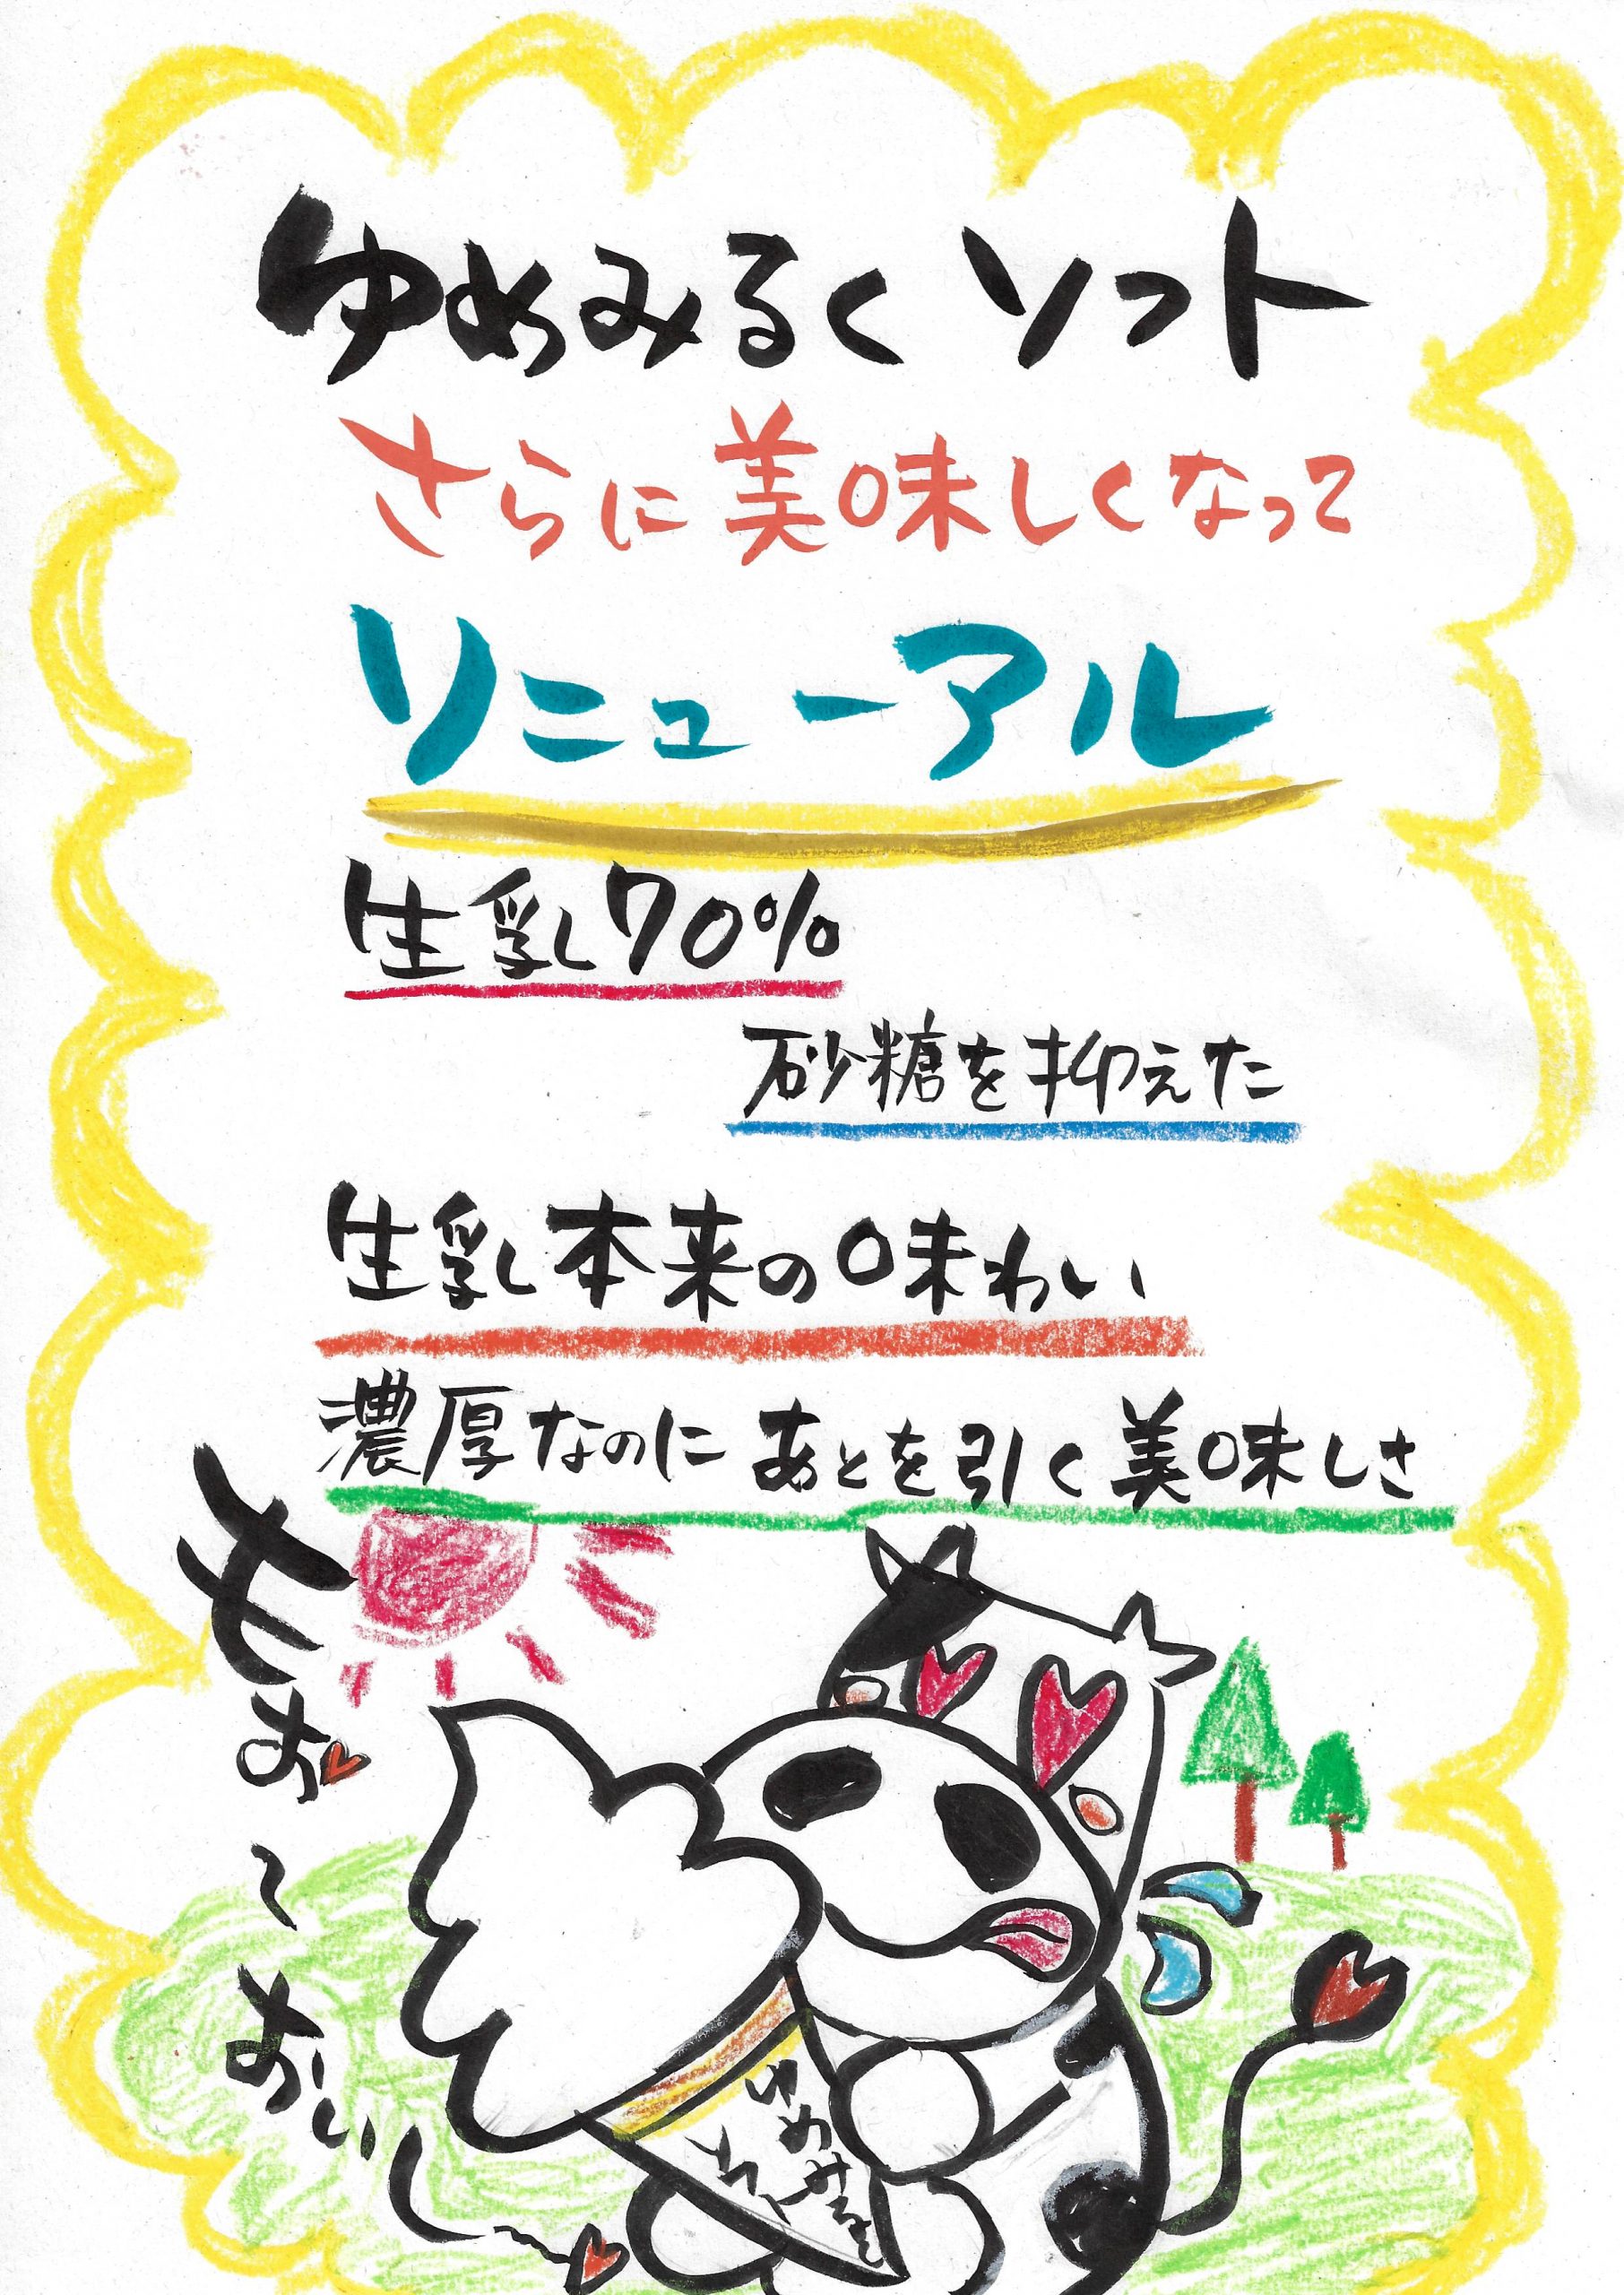 ゆめみるくソフト
さらに美味しくなって
リニューアル
生乳70%
砂糖を抑えた
生乳本来の味わい
濃厚なのにあとを引く美味しさ
もぉ〜おいし〜
ゆめみるく
ソフト